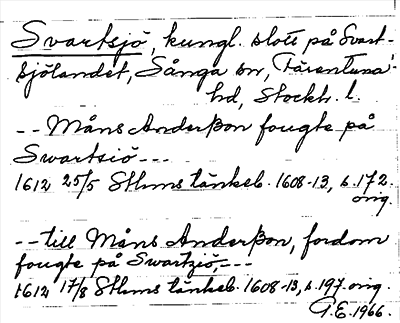 Svartsjö, kungl. slott på Svart-
sjölandet, Sånga sn, Färentuna
hd, Stockh. l.
-- Måns Anderßon fougte på
Swartsiö ---
1612 25/5 Sthms tänkeb. 1608-13, s. 172.
orig.
-- till Måns Anderßon, fordom
fougte på Swartziö, ---
1612 17/8 Sthms tänkeb. 1608-13, s. 197. orig.
G.E. 1966.